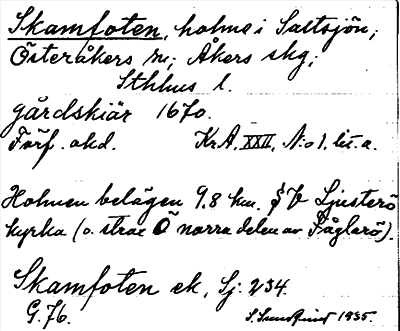 Skamfoten, holme i Saltsjön;
Österåkers sn; Åkers skg;
Sthlms l.
gårdskiär 1670.
Förf. okd. Kr.A. XXII, No 1. lit. a.
Holmen belägen 9,8 km. S V Ljusterö
kyrka (o. strax Ö norra delen av Fåglarö).
Skamfoten ek, Sj. 234.
G. 76. 1935.